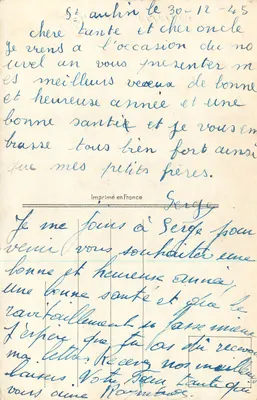 St aubin le 30-12-45
chère Tante et cher oncle
Je viens à l'occasion du no
uvel an vous présenter m
es meilleurs voeux de bonne
et heureuse année et une
bonne santé et je vous em
brasse tous bien fort ainsi
que mes petits frères.
Serge
Imprimé en France
Je me joins à Serge pour
venir vous souhaiter une
bonne et heureuse année,
une bonne santé et que le
ravitaillement se fasse mieux
J'espère que tu as dû recevoir
ma lettre. Recevez nos meilleurs
baisers. Votre Tante qui
vous aime